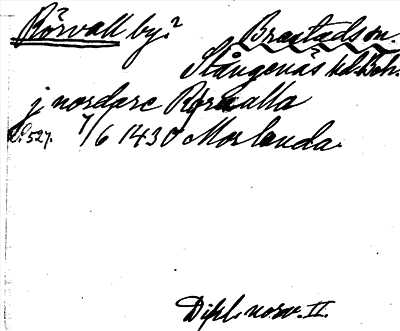 Rörvall by? Brastads sn.
Stångenäs hd. Boh.
j nordare Rørualla
S. 527. 7/6 1430 Morlanda.
Dipl. norv. II.